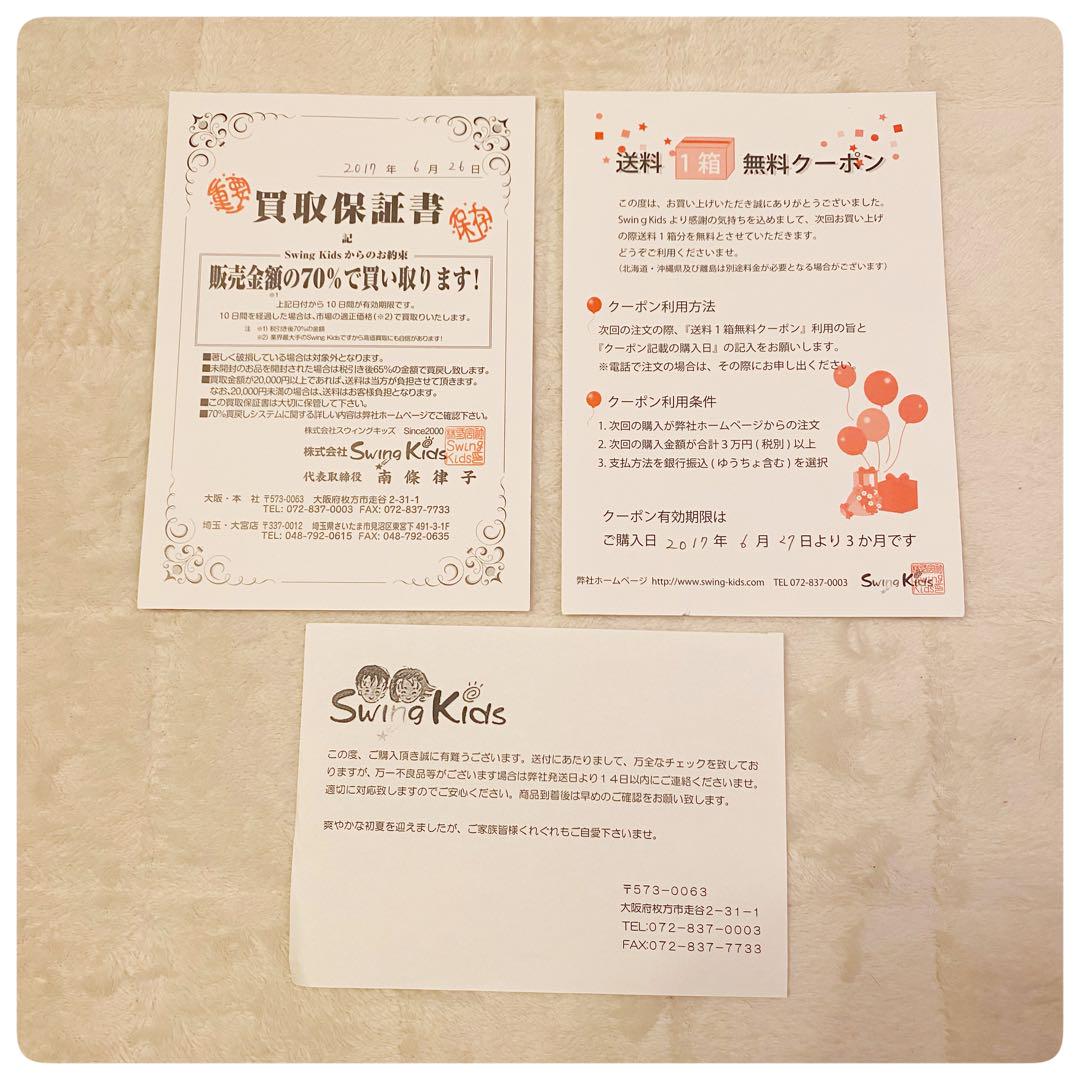 2017年 6月 26日
重要
買取保証書
保存
記
Swing Kids からのお約束
販売金額の70%で買い取ります!
※1
上記日付から10日間が有効期限です。
10日間を経過した場合は、市場の適正価格(※2)で買取りいたします。
注 ※1) 税引き後70%の金額
※2) 業界最大手のSwing Kidsですから高価買取にも自信があります!
■著しく破損している場合は対象外となります。
■未開封のお品を開封された場合は税引き後65%の金額で買戻し致します。
■買取金額が20,000円以上であれば、送料は当方が負担させて頂きます。
なお、20,000円未満の場合は、送料はお客様負担となります。
■この買取保証書は大切に保管して下さい。
■70%買戻しシステムに関する詳しい内容は弊社ホームページでご確認下さい。
株式会社スウィングキッズ Since2000
株式会社 Swing Kids
Swing
Kids
代表取締役 南條律子
大阪・本 社 〒573-0063 大阪府枚方市走谷 2-31-1
TEL: 072-837-0003 FAX: 072-837-7733
埼玉・大宮店 〒337-0012 埼玉県さいたま市見沼区東宮下 491-3-1F
TEL: 048-792-0615 FAX: 048-792-0635
送料 1箱 無料クーポン
この度は、お買い上げいただき誠にありがとうございました。
Swing Kids より感謝の気持ちを込めまして、次回お買い上げ
の際送料1箱分を無料とさせていただきます。
どうぞご利用くださいませ。
(北海道・沖縄県及び離島は別途料金が必要となる場合がございます)
クーポン利用方法
次回の注文の際、『送料1箱無料クーポン』利用の旨と
『クーポン記載の購入日』の記入をお願いします。
※電話で注文の場合は、その際にお申し出ください。
クーポン利用条件
1. 次回の購入が弊社ホームページからの注文
2. 次回の購入金額が合計3万円(税別)以上
3. 支払方法を銀行振込(ゆうちょ含む)を選択
クーポン有効期限は
ご購入日 2017年 6月 27日より3か月です
弊社ホームページ http://www.swing-kids.com TEL 072-837-0003 Swing Kids
Swing Kids
この度、ご購入頂き誠に有難うございます。送付にあたりまして、万全なチェックを致してお
りますが、万一不良品等がございます場合は弊社発送日より14日以内にご連絡くださいませ。
適切に対応致しますのでご安心ください。商品到着後は早めのご確認をお願い致します。
爽やかな初夏を迎えましたが、ご家族皆様くれぐれもご自愛下さいませ。
〒573-0063
大阪府枚方市走谷2-31-1
TEL:072-837-0003
FAX:072-837-7733